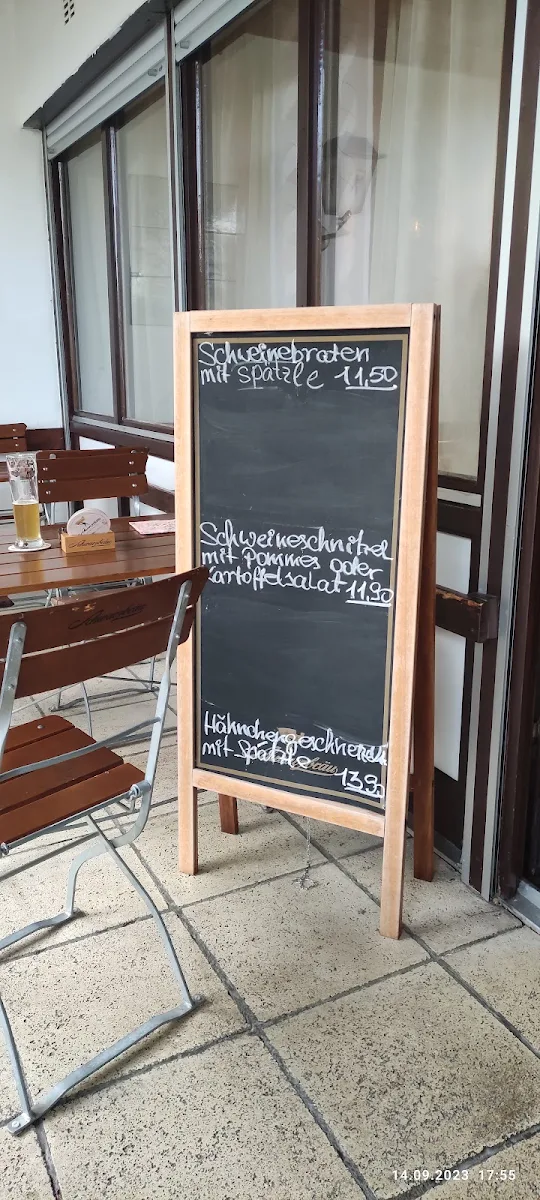 Schweinebraten
mit Spätzle 11,50
Schweineschnitzel
mit Pommes oder
Kartoffelsalat 11,90
Hähnchengeschnetzel
mit Spätzle
13,90
14.09.2023 17:55